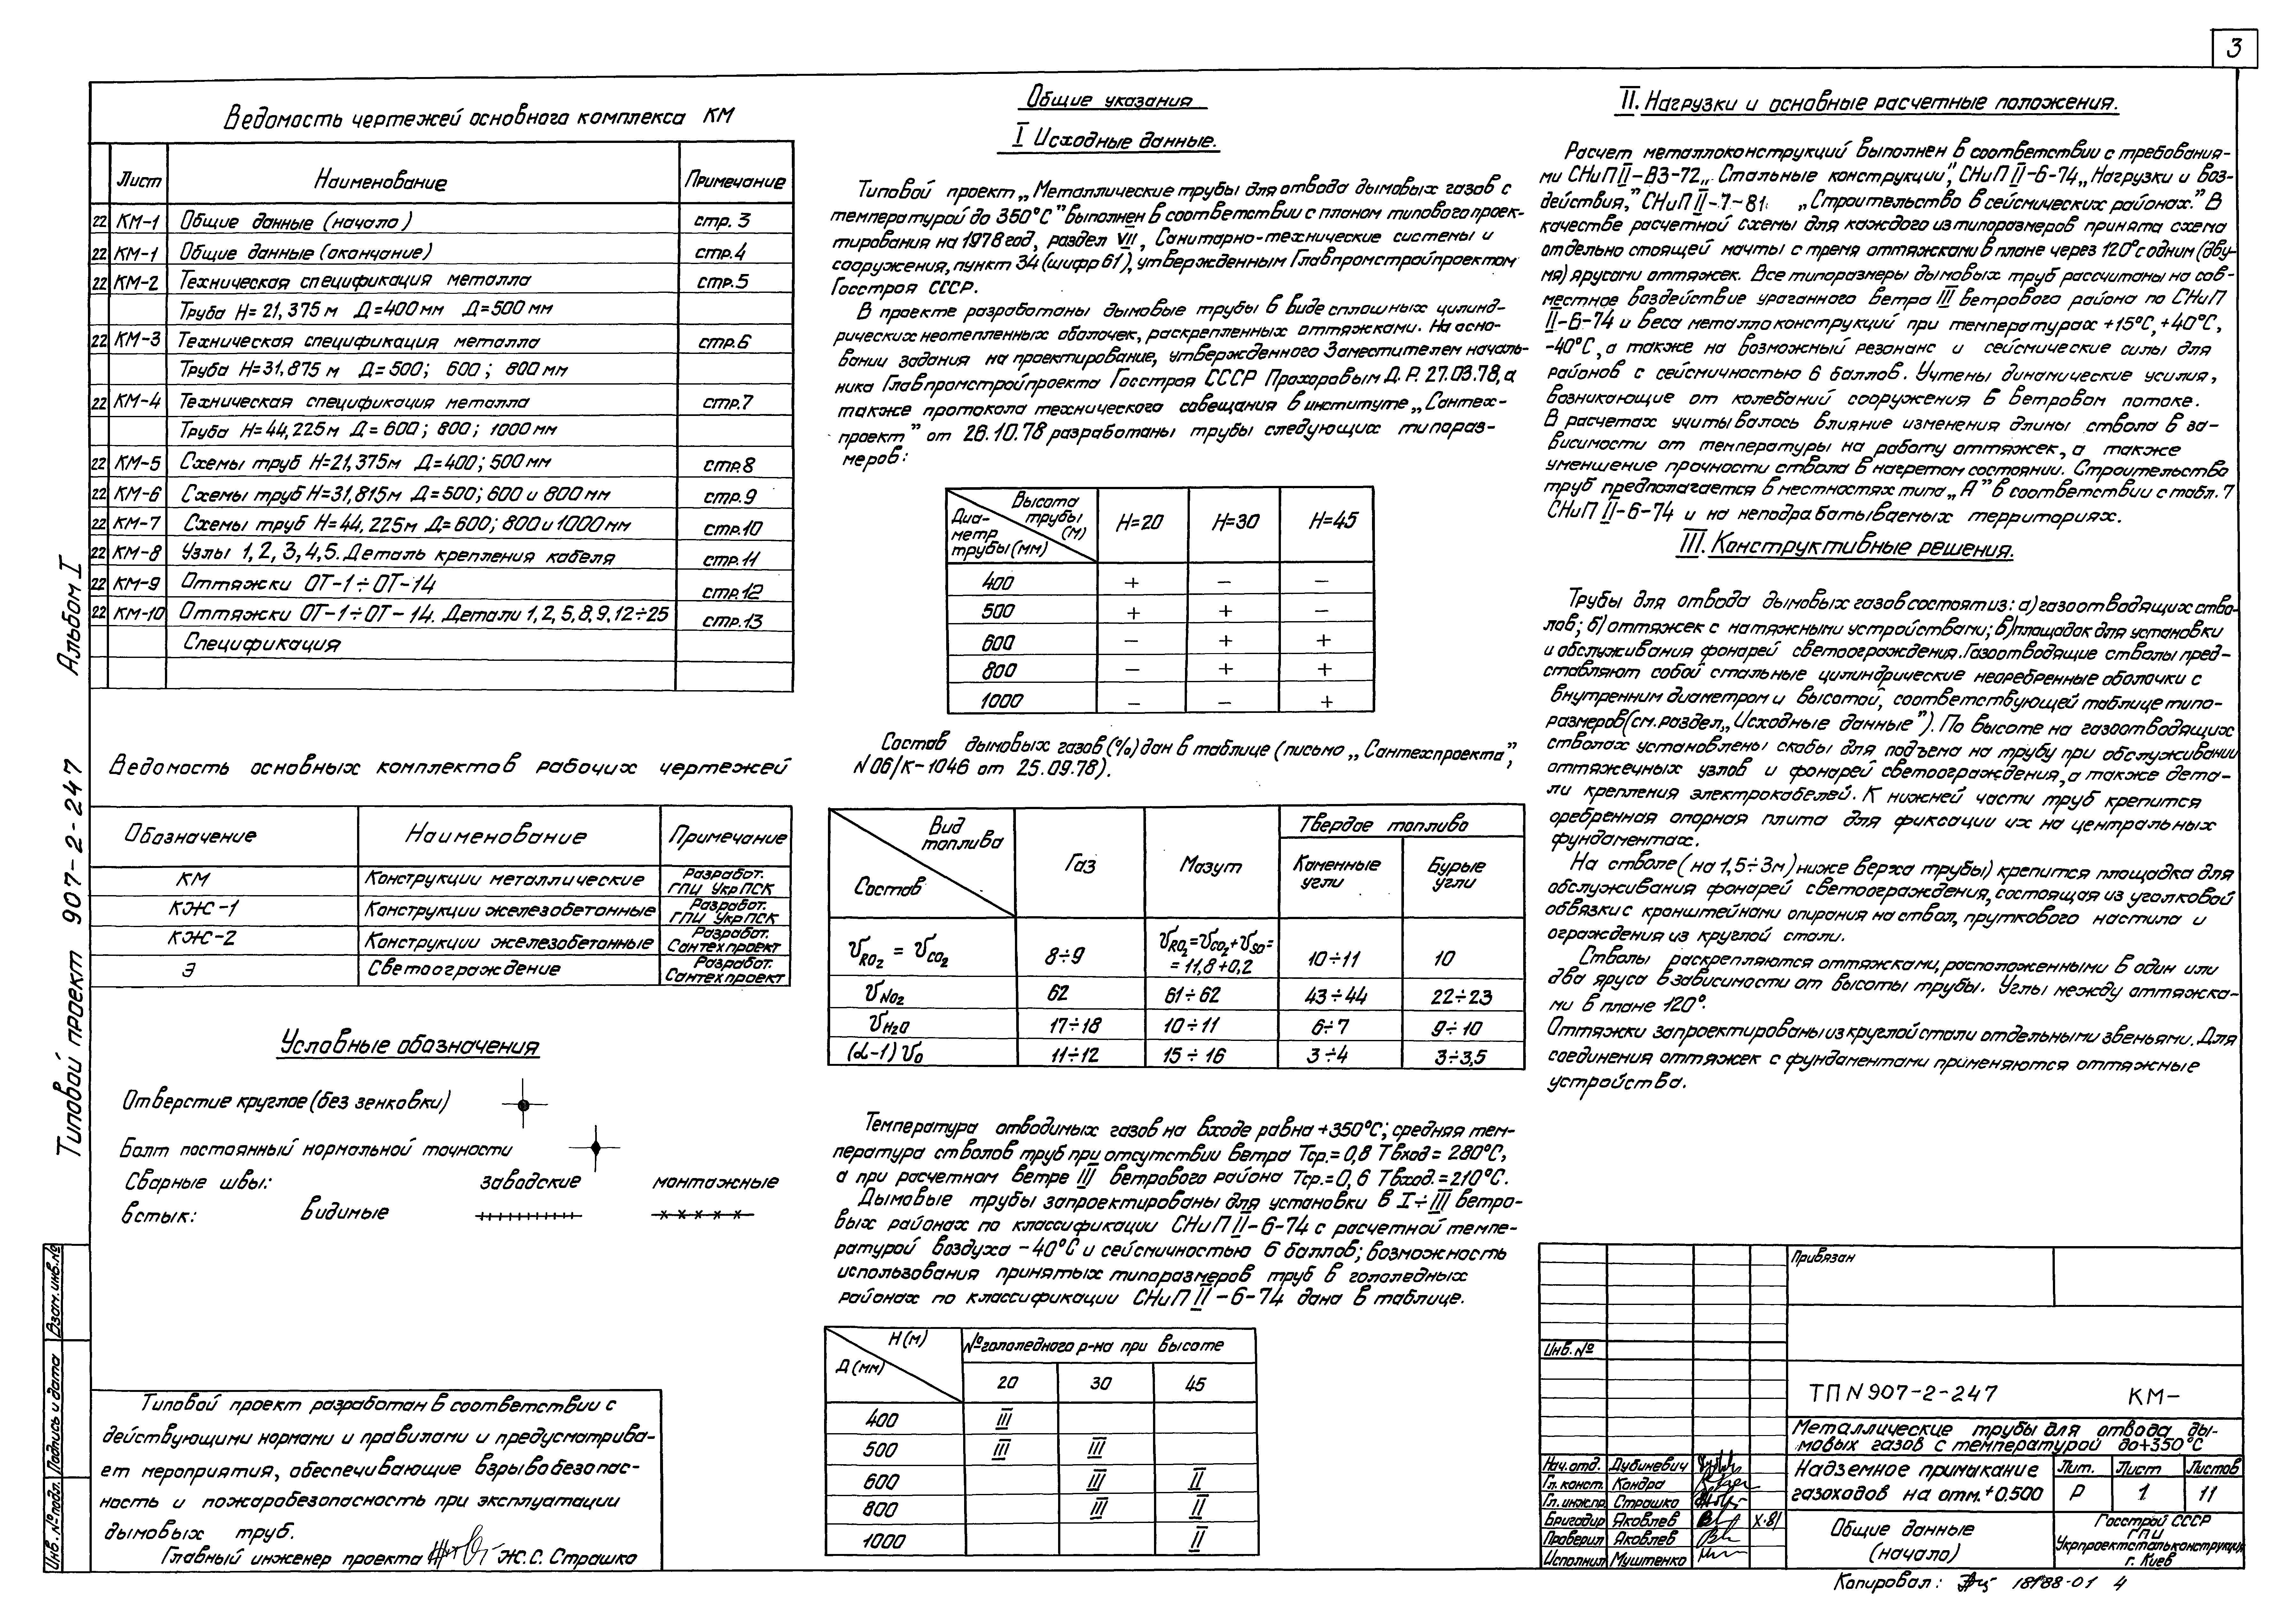 3
Ведомость чертежей основного комплекса КМ
Лист Наименование Примечание
22 КМ-1 Общие данные (начало) стр. 3
22 КМ-1 Общие данные (окончание) стр.4
22 КМ-2 Техническая спецификация металла стр.5
Труба Н= 21,375 м Д=400мм Д=500 мм
22 КМ-3 Техническая спецификация металла стр.6
Труба Н=31,875 м Д=500; 600; 800 мм
22 КМ-4 Техническая спецификация металла стр.7
Труба Н=44,225м Д=600; 800; 1000 мм
22 КМ-5 Схемы труб Н=21,375м Д=400; 500 мм стр.8
22 КМ-6 Схемы труб Н=31,815м Д=500; 600 и 800 мм стр.9
22 КМ-7 Схемы труб Н=44,225м Д=600; 800 и 1000 мм стр.10
22 КМ-8 Узлы 1,2,3,4,5. Деталь крепления кабеля стр.11
22 КМ-9 Оттяжки ОТ-1÷ОТ-14 стр.12
22 КМ-10 Оттяжки ОТ-1÷ОТ-14. Детали 1,2,5,8,9,12÷25 стр.13
Спецификация
Ведомость основных комплектов рабочих чертежей
Обозначение Наименование Примечание
КМ Конструкции металлические Разработ. ГПИ УкрПСК
КЖ-1 Конструкции железобетонные Разработ. ГПИ УкрПСК
КЖ-2 Конструкции железобетонные Разработ. Сантехпроект
Э Светоограждение Разработ. Сантехпроект
Условные обозначения
Отверстие круглое (без зенковки)
Болт постоянный нормальной точности
Сварные швы: заводские монтажные
встык: видимые
Типовой проект разработан в соответствии с
действующими нормами и правилами и предусматрива-
ет мероприятия, обеспечивающие взрывобезопас-
ность и пожаробезопасность при эксплуатации
дымовых труб.
Главный инженер проекта Ж.С. Страшко
Типовой проект 907-2-247 Альбом I
Инв. № подл. Подпись и дата Взам. инв. №
Общие указания
I Исходные данные.
Типовой проект „Металлические трубы для отвода дымовых газов с
температурой до 350°С" выполнен в соответствии с планом типового проек-
тирования на 1978 год, раздел VII, Санитарно-технические системы и
сооружения, пункт 34 (шифр 61), утвержденным Главпромстройпроектом
Госстроя СССР.
В проекте разработаны дымовые трубы в виде сплошных цилинд-
рических неотепленных оболочек, раскрепленных оттяжками. На осно-
вании задания на проектирование, утвержденного Заместителем началь-
ника Главпромстройпроекта Госстроя СССР Прохоровым Д.Р. 27.03.78, а
также протокола технического совещания в институте „Сантех-
проект" от 26.10.78 разработаны трубы следующих типораз-
меров:
Диаметр трубы (мм) Высота трубы (м) Н=20 Н=30 Н=45
400 + – –
500 + + –
600 – + +
800 – + +
1000 – – +
Состав дымовых газов (%) дан в таблице (письмо „Сантехпроекта",
N 06/К-1046 от 25.09.78).
Вид топлива Состав Газ Мазут Твердое топливо
Каменные угли Бурые угли
υRO2 = υCO2 8÷9 υRO2=υCO2+υSO= = 11,8+0,2 10÷11 10
υNO2 62 61÷62 43÷44 22÷23
υH2O 17÷18 10÷11 6÷7 9÷10
(α-1) υ0 11÷12 15÷16 3÷4 3÷3,5
Температура отводимых газов на входе равна +350°С; средняя тем-
пература стволов труб при отсутствии ветра Тср.=0,8 Твход= 280°С,
а при расчетном ветре III ветрового района Тср.=0,6 Твход.=210°С.
Дымовые трубы запроектированы для установки в I÷III ветро-
вых районах по классификации СНиП II-6-74 с расчетной темпе-
ратурой воздуха -40°С и сейсмичностью 6 баллов; возможность
использования принятых типоразмеров труб в гололедных
районах по классификации СНиП II-6-74 дана в таблице.
Н (м) Д (мм) № гололедного р-на при высоте
20 30 45
400 III
500 III III
600 III II
800 III II
1000 II
II. Нагрузки и основные расчетные положения.
Расчет металлоконструкций выполнен в соответствии с требования-
ми СНиП II-В3-72 „Стальные конструкции", СНиП II-6-74 „Нагрузки и воз-
действия", СНиП II-7-81. „Строительство в сейсмических районах." В
качестве расчетной схемы для каждого из типоразмеров принята схема
отдельно стоящей мачты с тремя оттяжками в плане через 120° с одним (дву-
мя) ярусами оттяжек. Все типоразмеры дымовых труб рассчитаны на сов-
местное воздействие ураганного ветра III ветрового района по СНиП
II-6-74 и веса металлоконструкций при температурах +15°С, +40°С,
-40°С, а также на возможный резонанс и сейсмические силы для
районов с сейсмичностью 6 баллов. Учтены динамические усилия,
возникающие от колебаний сооружения в ветровом потоке.
В расчетах учитывалось влияние изменения длины ствола в за-
висимости от температуры на работу оттяжек, а также
уменьшение прочности ствола в нагретом состоянии. Строительство
труб предполагается в местностях типа „А" в соответствии с табл. 7
СНиП II-6-74 и на неподрабатываемых территориях.
III. Конструктивные решения.
Трубы для отвода дымовых газов состоят из: а) газоотводящих ство-
лов; б) оттяжек с натяжными устройствами; в) площадок для установки
и обслуживания фонарей светоограждения. Газоотводящие стволы пред-
ставляют собой стальные цилиндрические неоребренные оболочки с
внутренним диаметром и высотой, соответствующей таблице типо-
размеров (см. раздел „Исходные данные"). По высоте на газоотводящих
стволах установлены скобы для подъема на трубу при обслуживании
оттяжечных узлов и фонарей светоограждения, а также дета-
ли крепления электрокабелей. К нижней части труб крепится
оребренная опорная плита для фиксации их на центральных
фундаментах.
На стволе (на 1,5÷3м) ниже верха трубы) крепится площадка для
обслуживания фонарей светоограждения, состоящая из уголковой
обвязки с кронштейнами опирания на ствол, пруткового настила и
ограждения из круглой стали.
Стволы раскрепляются оттяжками, расположенными в один или
два яруса в зависимости от высоты трубы. Углы между оттяжка-
ми в плане 120°.
Оттяжки запроектированы из круглой стали отдельными звеньями. Для
соединения оттяжек с фундаментами применяются оттяжные
устройства.
Привязан
Инв. №
ТП N 907-2-247 КМ-
Металлические трубы для отвода ды-
мовых газов с температурой до +350°С
Нач. отд. Дубиневич
Гл. конст. Кондра
Гл. инж.пр. Страшко
Бригадир Яковлев X.81
Проверил Яковлев
Исполнил Муштенко
Надземное примыкание
газоходов на отм. +0.500
Лит. Лист Листов
Р 1 11
Общие данные
(начало)
Госстрой СССР
ГПИ
Укрпроектстальконструкция
г. Киев
Копировал: 18188-01 4